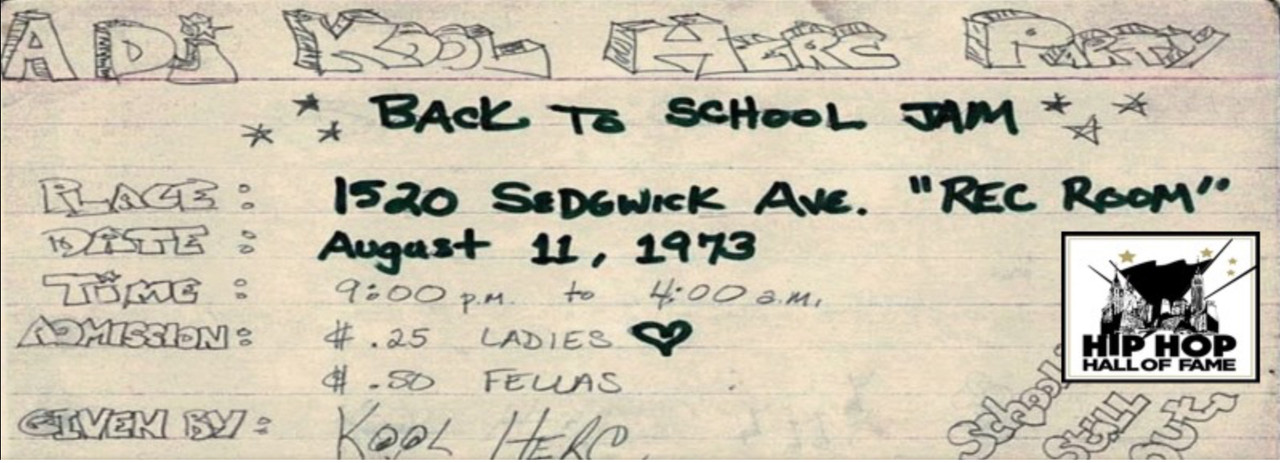 A DJ KOOL HERC PARTY
BACK TO SCHOOL JAM
PLACE: 1520 SEDGWICK AVE. "REC ROOM"
DATE: August 11, 1973
TIME: 9:00 p.m. to 4:00 a.m.
ADMISSION: $ .25 LADIES
$ .50 FELLAS
GIVEN BY: KOOL HERC
HIP HOP
HALL OF FAME
School
Still
Out